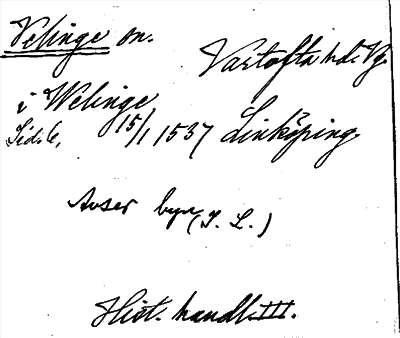 Velinge sn.
Vartofta hd. Vg.
i Welinge
Sid. 6, 15/1 1537 Linköping
Avser byn (I. L.)
Hist. handl. III.